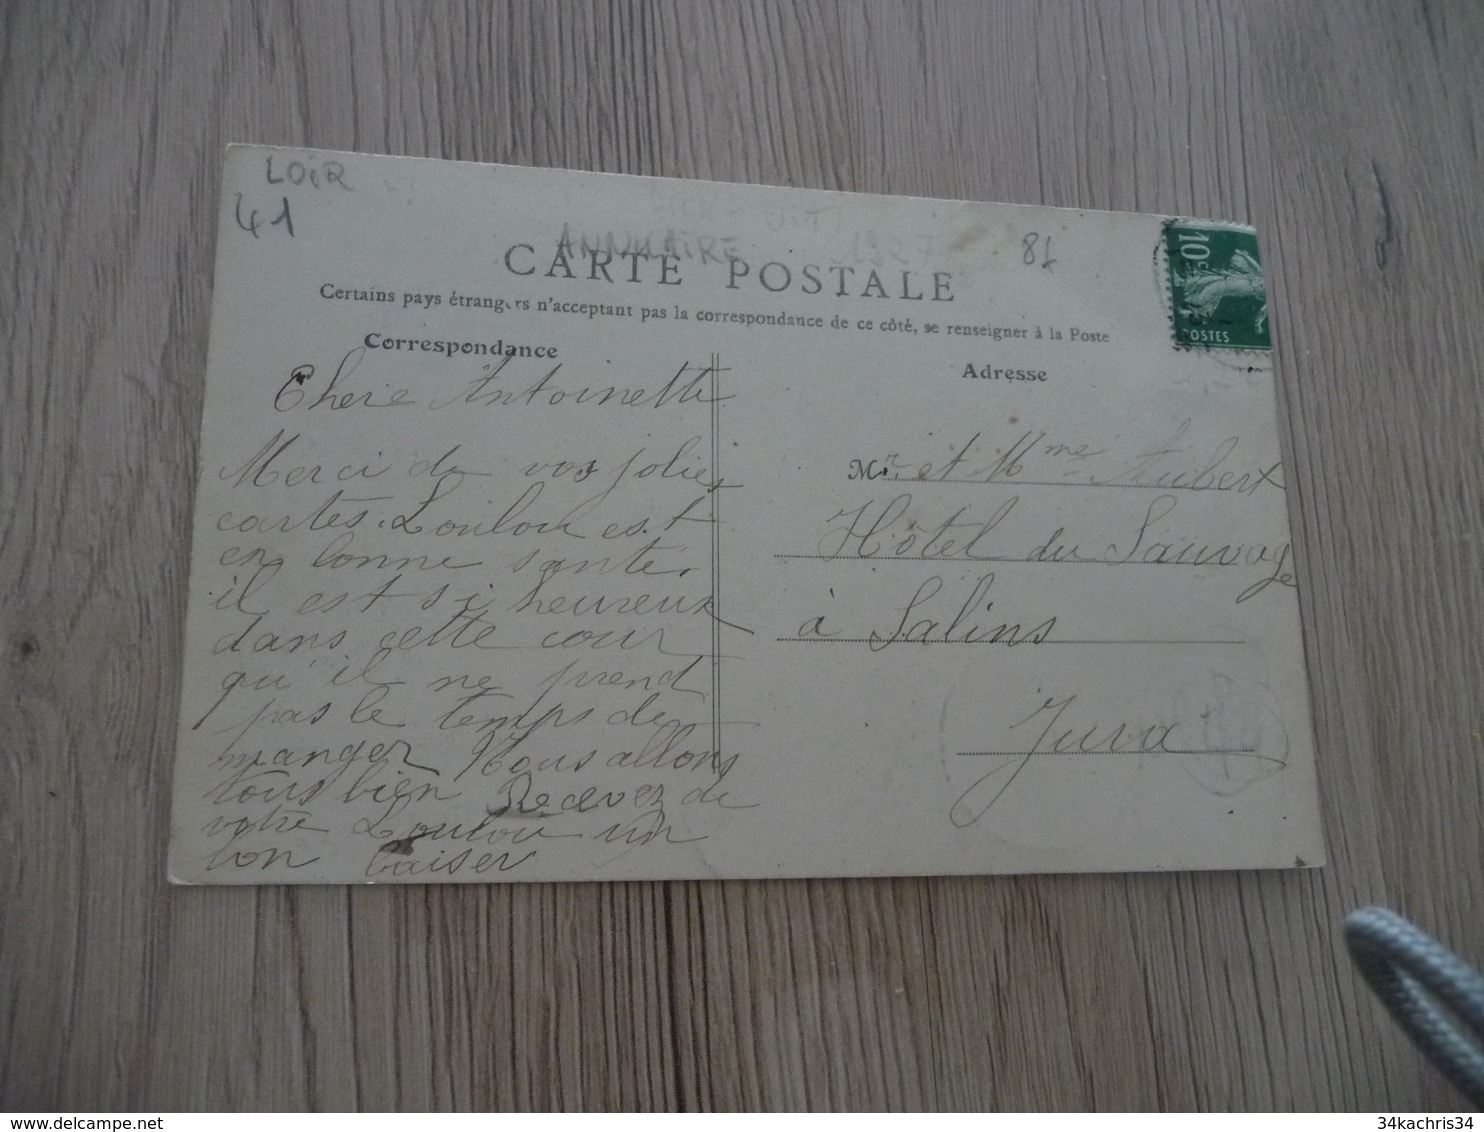 LOIR
41
ANNUAIRE
81
10c
POSTES
CARTE POSTALE
Certains pays étrangers n'acceptant pas la correspondance de ce côté, se renseigner à la Poste
Correspondance
Chere Antoinette
Merci de vos jolies
cartes. Loulou est
en bonne santé.
il est si heureux
dans cette cour
qu'il ne prend
pas le temps de
manger Nous allons
tous bien Recevez de
votre Loulou un
bon baiser
Adresse
Mr et Mme Aubert
Hôtel du Sauvage
à Salins
Jura
34kachris34